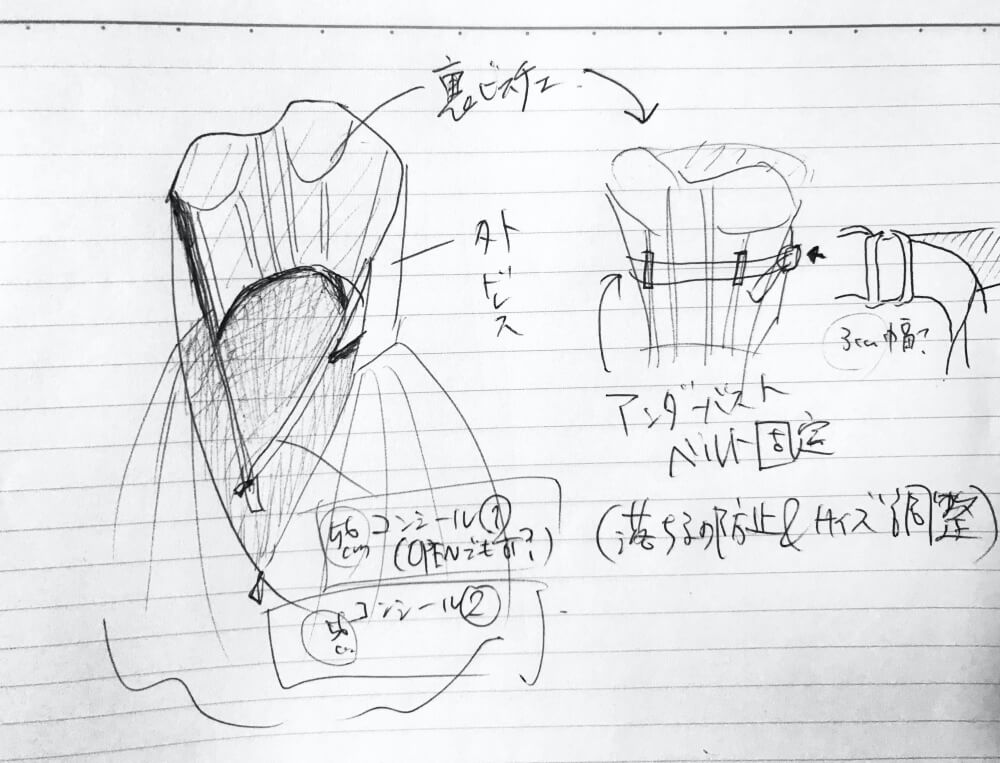 裏ビスチェ
外ドレス
3cm幅?
アンダーバスト
ベルト固定
(落ちるの防止&サイズ調整)
56cm コンシール①
(OPENでもOK?)
56cm コンシール②